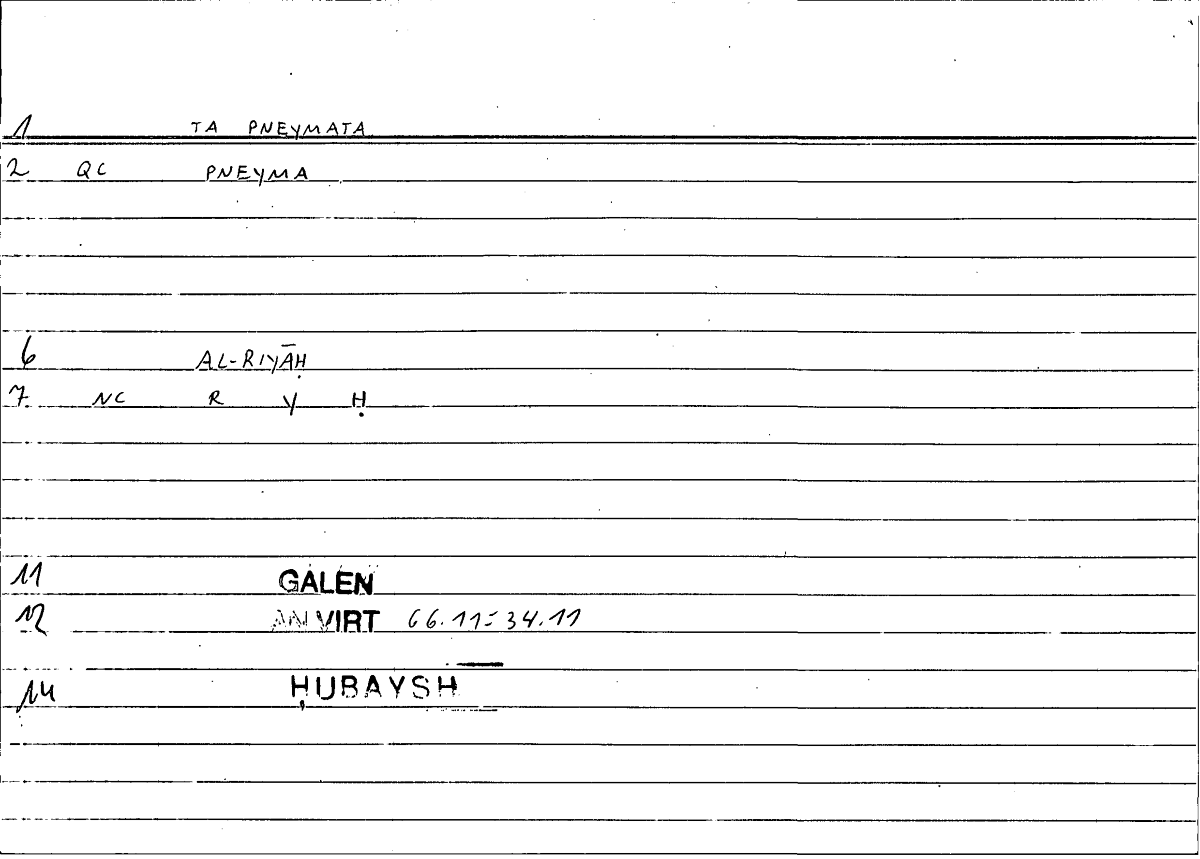 1 TA PNEYMATA
2 QC PNEYMA
6 AL-RIYĀḤ
7 NC R Y Ḥ
11 GALEN
12 AN VIRT 66.11=34.11
14 ḤUBAYSH